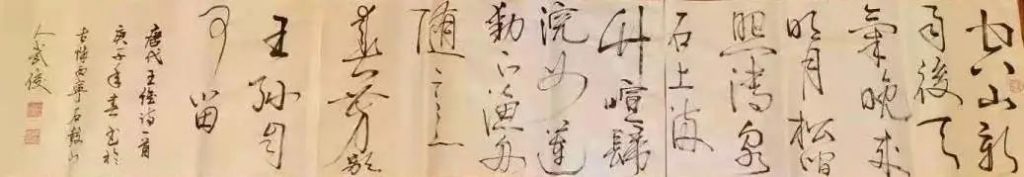 空山新
雨後天
氣晚来
明月松間
照清泉
石上流
竹喧歸
浣女蓮
動下漁舟
隨意
春芳歇
王孫自
可留
唐代王维诗一首
庚子年春书於
西寧石山
人武俊